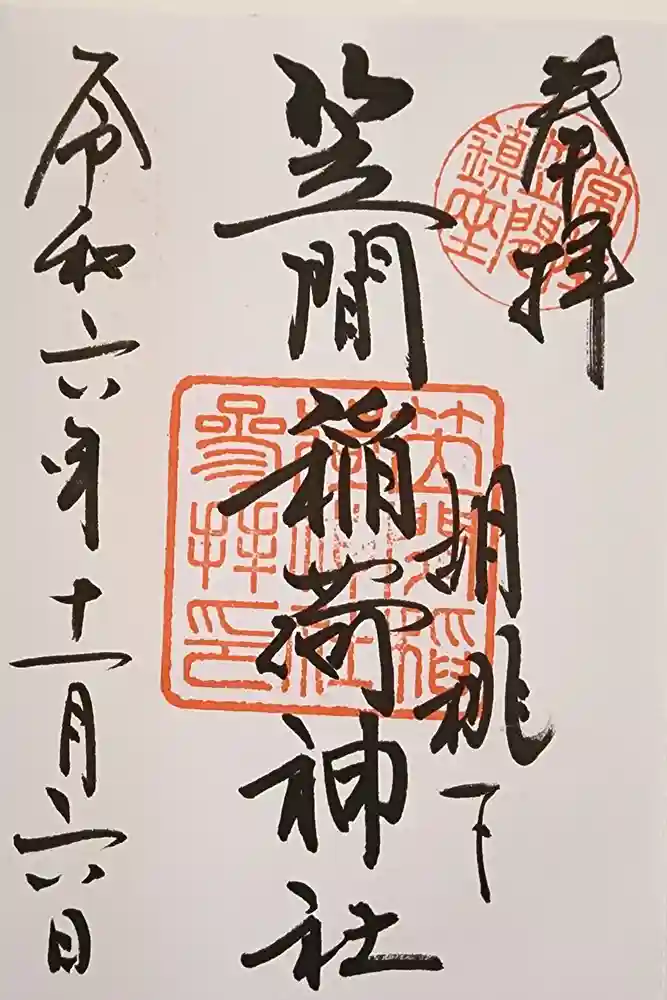 奉拝
常陸
笠間
鎮座
胡桃下
笠間稲荷神社
笠間稲
荷神社
參拝印
令和六年十一月六日